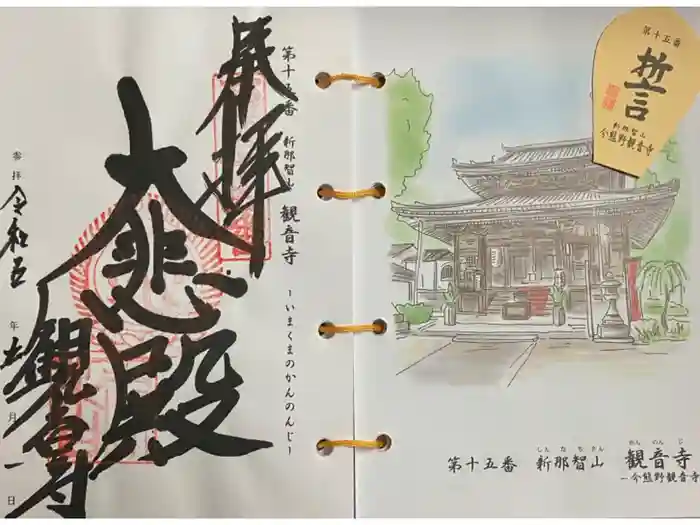 奉拝
第十五番 新那智山 観音寺
-いまくまのかんのんじ-
大悲殿
観音寺
参拝 令和五年 十一月 一日
第十五番
誓
新那智山
今熊野観音寺
しんなちさん かんのんじ
第十五番 新那智山 観音寺
-今熊野観音寺